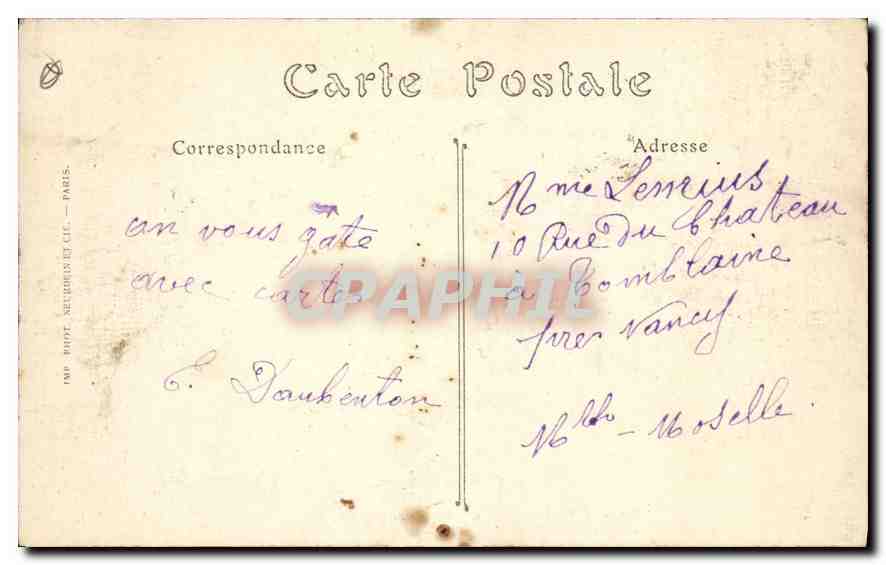 Carte Postale
Correspondance
Adresse
on vous gâte
avec cartes
E. Daubenton
Mme
10 Rue du Chateau
à Tomblaine
près Nancy
Mthe - Moselle.
IMP. PHOT. NEURDEIN ET CIE. — PARIS.
CPAPHIL